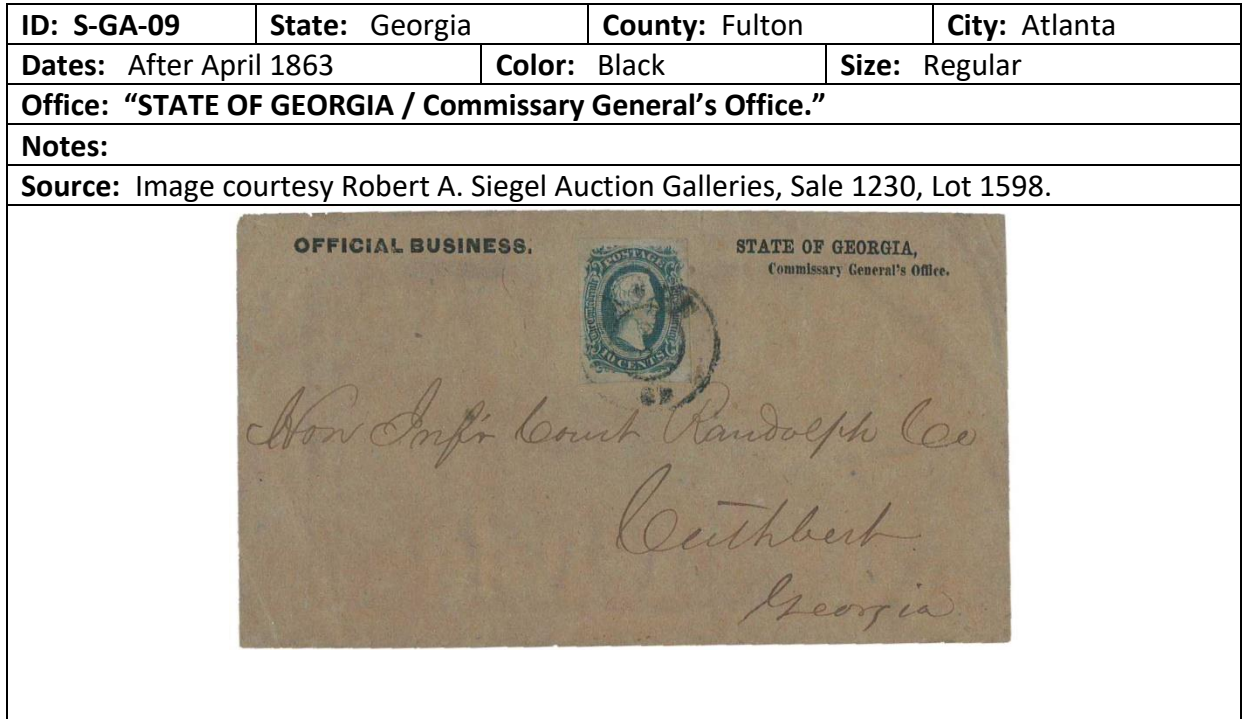 ID: S-GA-09 State: Georgia County: Fulton City: Atlanta
Dates: After April 1863 Color: Black Size: Regular
Office: “STATE OF GEORGIA / Commissary General’s Office.”
Notes:
Source: Image courtesy Robert A. Siegel Auction Galleries, Sale 1230, Lot 1598.
OFFICIAL BUSINESS.
POSTAGE
10 CENTS
STATE OF GEORGIA,
Commissary General's Office.
Hon Inf'r Court Randolph Co
Cuthbert
Georgia